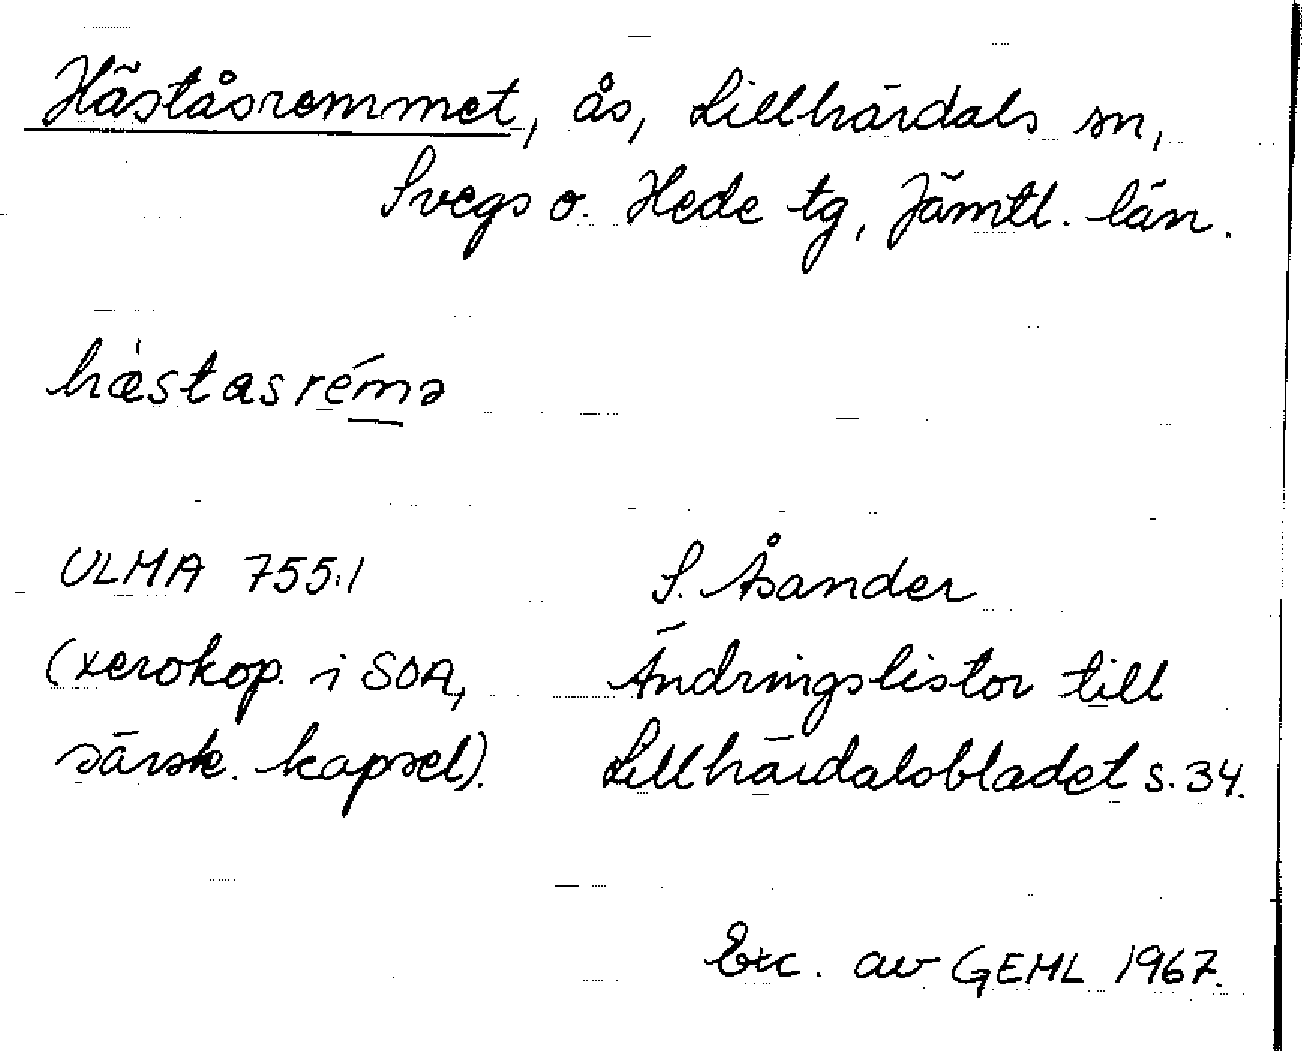 Häståsremmet, ås, Lillhärdals sn,
Svegs o. Hede tg, Jämtl. län.
hæ̀stasrémə
ULMA 755:1
(xerokop. i SOA,
särsk. kapsel).
S. Åsander
Ändringslistor till
Lillhärdalsbladet s. 34.
Exc. av GEHL 1967.